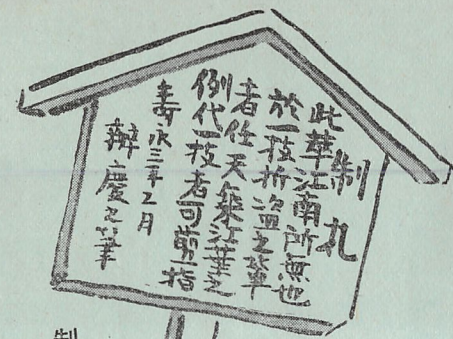 制札
此華江南所無也
於一枝折盗之輩
者任天永江葉之
例代一枝者可剪一指
壽永三年二月
辨慶之筆
制